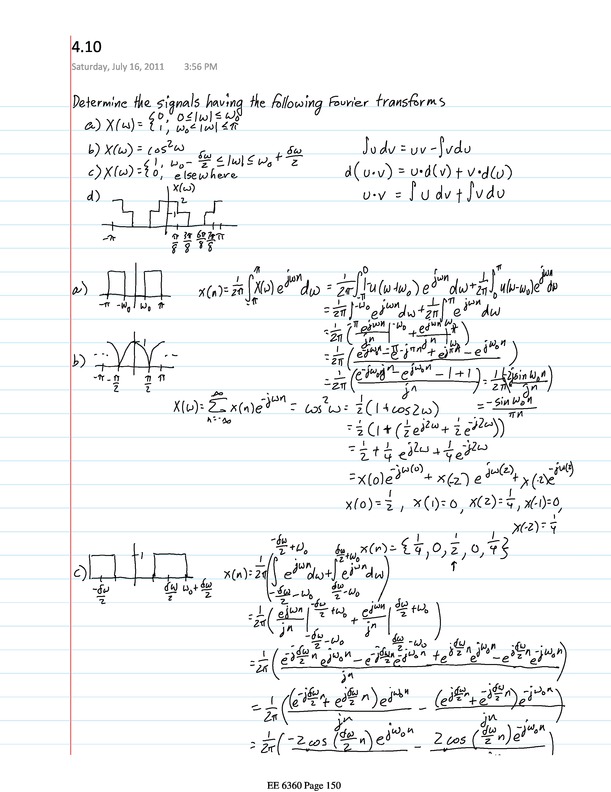 4.10
Saturday, July 16, 2011 3:56 PM
Determine the signals having the following Fourier transforms
a) X(ω) = {0, 0≤|ω|≤ω₀
{1, ω₀<|ω|≤π
b) X(ω) = cos²ω
c) X(ω) = {1, ω₀ - δω/2 ≤|ω|≤ ω₀ + δω/2
{0, elsewhere
∫udv = uv - ∫vdu
d(u·v) = u·d(v) + v·d(u)
u·v = ∫u dv + ∫v du
d) X(ω)
2
1
-π π/8 3π/8 6π/8 7π/8 π
a) -π -ω₀ ω₀ π
x(n) = 1/2π ∫_{-π}^{π} X(ω)e^{jωn}dω = 1/2π ∫_{-π}^{0} u(ω+ω₀) e^{jωn}dω + 1/2π ∫_{0}^{π} u(ω-ω₀)e^{jωn}dω
= 1/2π ∫_{-π}^{-ω₀} e^{jωn}dω + 1/2π ∫^{π} e^{jωn}dω
= 1/2π (e^{jωn}/jn |_{-π}^{-ω₀} + e^{jωn}/jn |^{π})
= 1/2π (e^{-jω₀n} - e^{-jπn} + e^{jπn} - e^{jω₀n})
= 1/2π ((e^{-jω₀n} - e^{jω₀n} - 1 + 1)/jn) = 1/2π (-2j sin ω₀n / jn)
= -sin ω₀n / πn
b) -π -π/2 π/2 π
X(ω) = Σ_{n=-∞}^{∞} x(n)e^{-jωn} = cos²ω = 1/2 (1 + cos2ω)
= 1/2 (1 + (1/2 e^{j2ω} + 1/2 e^{-j2ω}))
= 1/2 + 1/4 e^{j2ω} + 1/4 e^{-j2ω}
= x(0)e^{-jω(0)} + x(-2) e^{jω(2)} + x(-2)e^{-jω(2)}
x(0) = 1/2, x(1) = 0, x(2) = 1/4, x(-1) = 0,
x(-2) = 1/4
x(n) = {1/4, 0, 1/2, 0, 1/4}
↑
c) 1
-δω/2 δω/2 ω₀ + δω/2
x(n) = 1/2π (∫_{-δω/2-ω₀}^{-δω/2+ω₀} e^{jωn}dω + ∫_{δω/2-ω₀}^{δω/2+ω₀} e^{jωn}dω)
= 1/2π (e^{jωn}/jn |_{-δω/2-ω₀}^{-δω/2+ω₀} + e^{jωn}/jn |_{δω/2-ω₀}^{δω/2+ω₀})
= 1/2π ((e^{-jδω/2 n} e^{jω₀n} - e^{-jδω/2 n} e^{-jω₀n} + e^{jδω/2 n} e^{jω₀n} - e^{jδω/2 n} e^{-jω₀n})/jn)
= 1/2π ((e^{-jδω/2 n} + e^{jδω/2 n}) e^{jω₀n}/jn - (e^{jδω/2 n} + e^{-jδω/2 n}) e^{-jω₀n}/jn)
= 1/2π (-2cos(δω/2 n) e^{jω₀n} - 2cos(δω/2 n) e^{-jω₀n})
EE 6360 Page 150